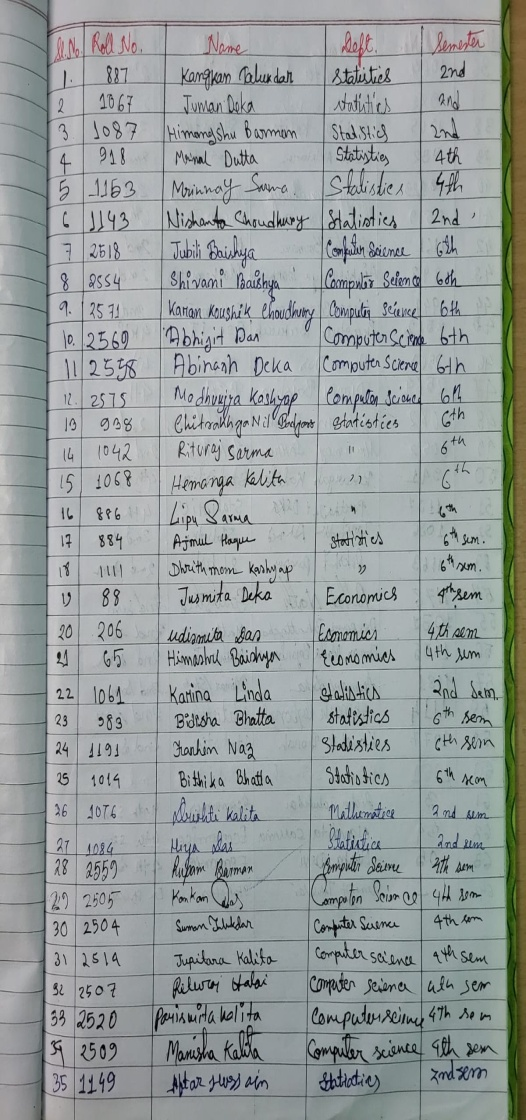 Sl.No. Roll No. Name Deptt. Semester
1. 887 Kangkan Talukdar Statistics 2nd
2 1067 Juman Deka Statistics 2nd
3 1087 Himangshu Barman Statistics 2nd
4 918 Mrinal Dutta Statistics 4th
5 1153 Mrinmay Sarma Statistics 4th
6 1143 Nishanta Choudhury Statistics 2nd
7 2518 Jubili Baishya Computer Science 6th
8 2554 Shivani Baishya Computer Science 6th
9. 2571 Karan Koushik Choudhury Computer Science 6th
10. 2569 Abhijit Das Computer Science 6th
11 2558 Abinash Deka Computer Science 6th
12. 2575 Kashyap Computer Science 6th
13 938 Statistics 6th
14 1042 Rituraj Sarma " 6th
15 1068 Hemanga Kalita ,, 6th
16 886 Lipu Sarma " 6th
17 884 Ajmul Haque Statistics 6th sem.
18 1111 Kashyap ,, 6th sem.
19 88 Jusmita Deka Economics 4th sem
20 206 Udismita Das Economics 4th sem
21 65 Himashri Baishya Economics 4th sem
22 1061 Karina Linda Statistics 2nd Sem.
23 983 Bidisha Bhatta Statistics 6th sem
24 1191 Farhin Naz Statistics 6th sem
25 1014 Bithika Bhatta Statistics 6th sem
26 1076 Kalita Mathematics 2nd sem
27 1084 Hiya Das Statistics 2nd sem
28 2559 Barman Computer Science 4th sem
29 2505 Kankan Das Computer Science 4th sem
30 2504 Suman Talukdar Computer Science 4th sem
31 2514 Jupitara Kalita Computer science 4th sem
32 2507 Computer science 4th sem
33 2520 Parismita Kalita Computer science 4th sem
34 2509 Manisha Kalita Computer science 4th sem
35 1149 Aftar Hussain Statistics 2nd sem